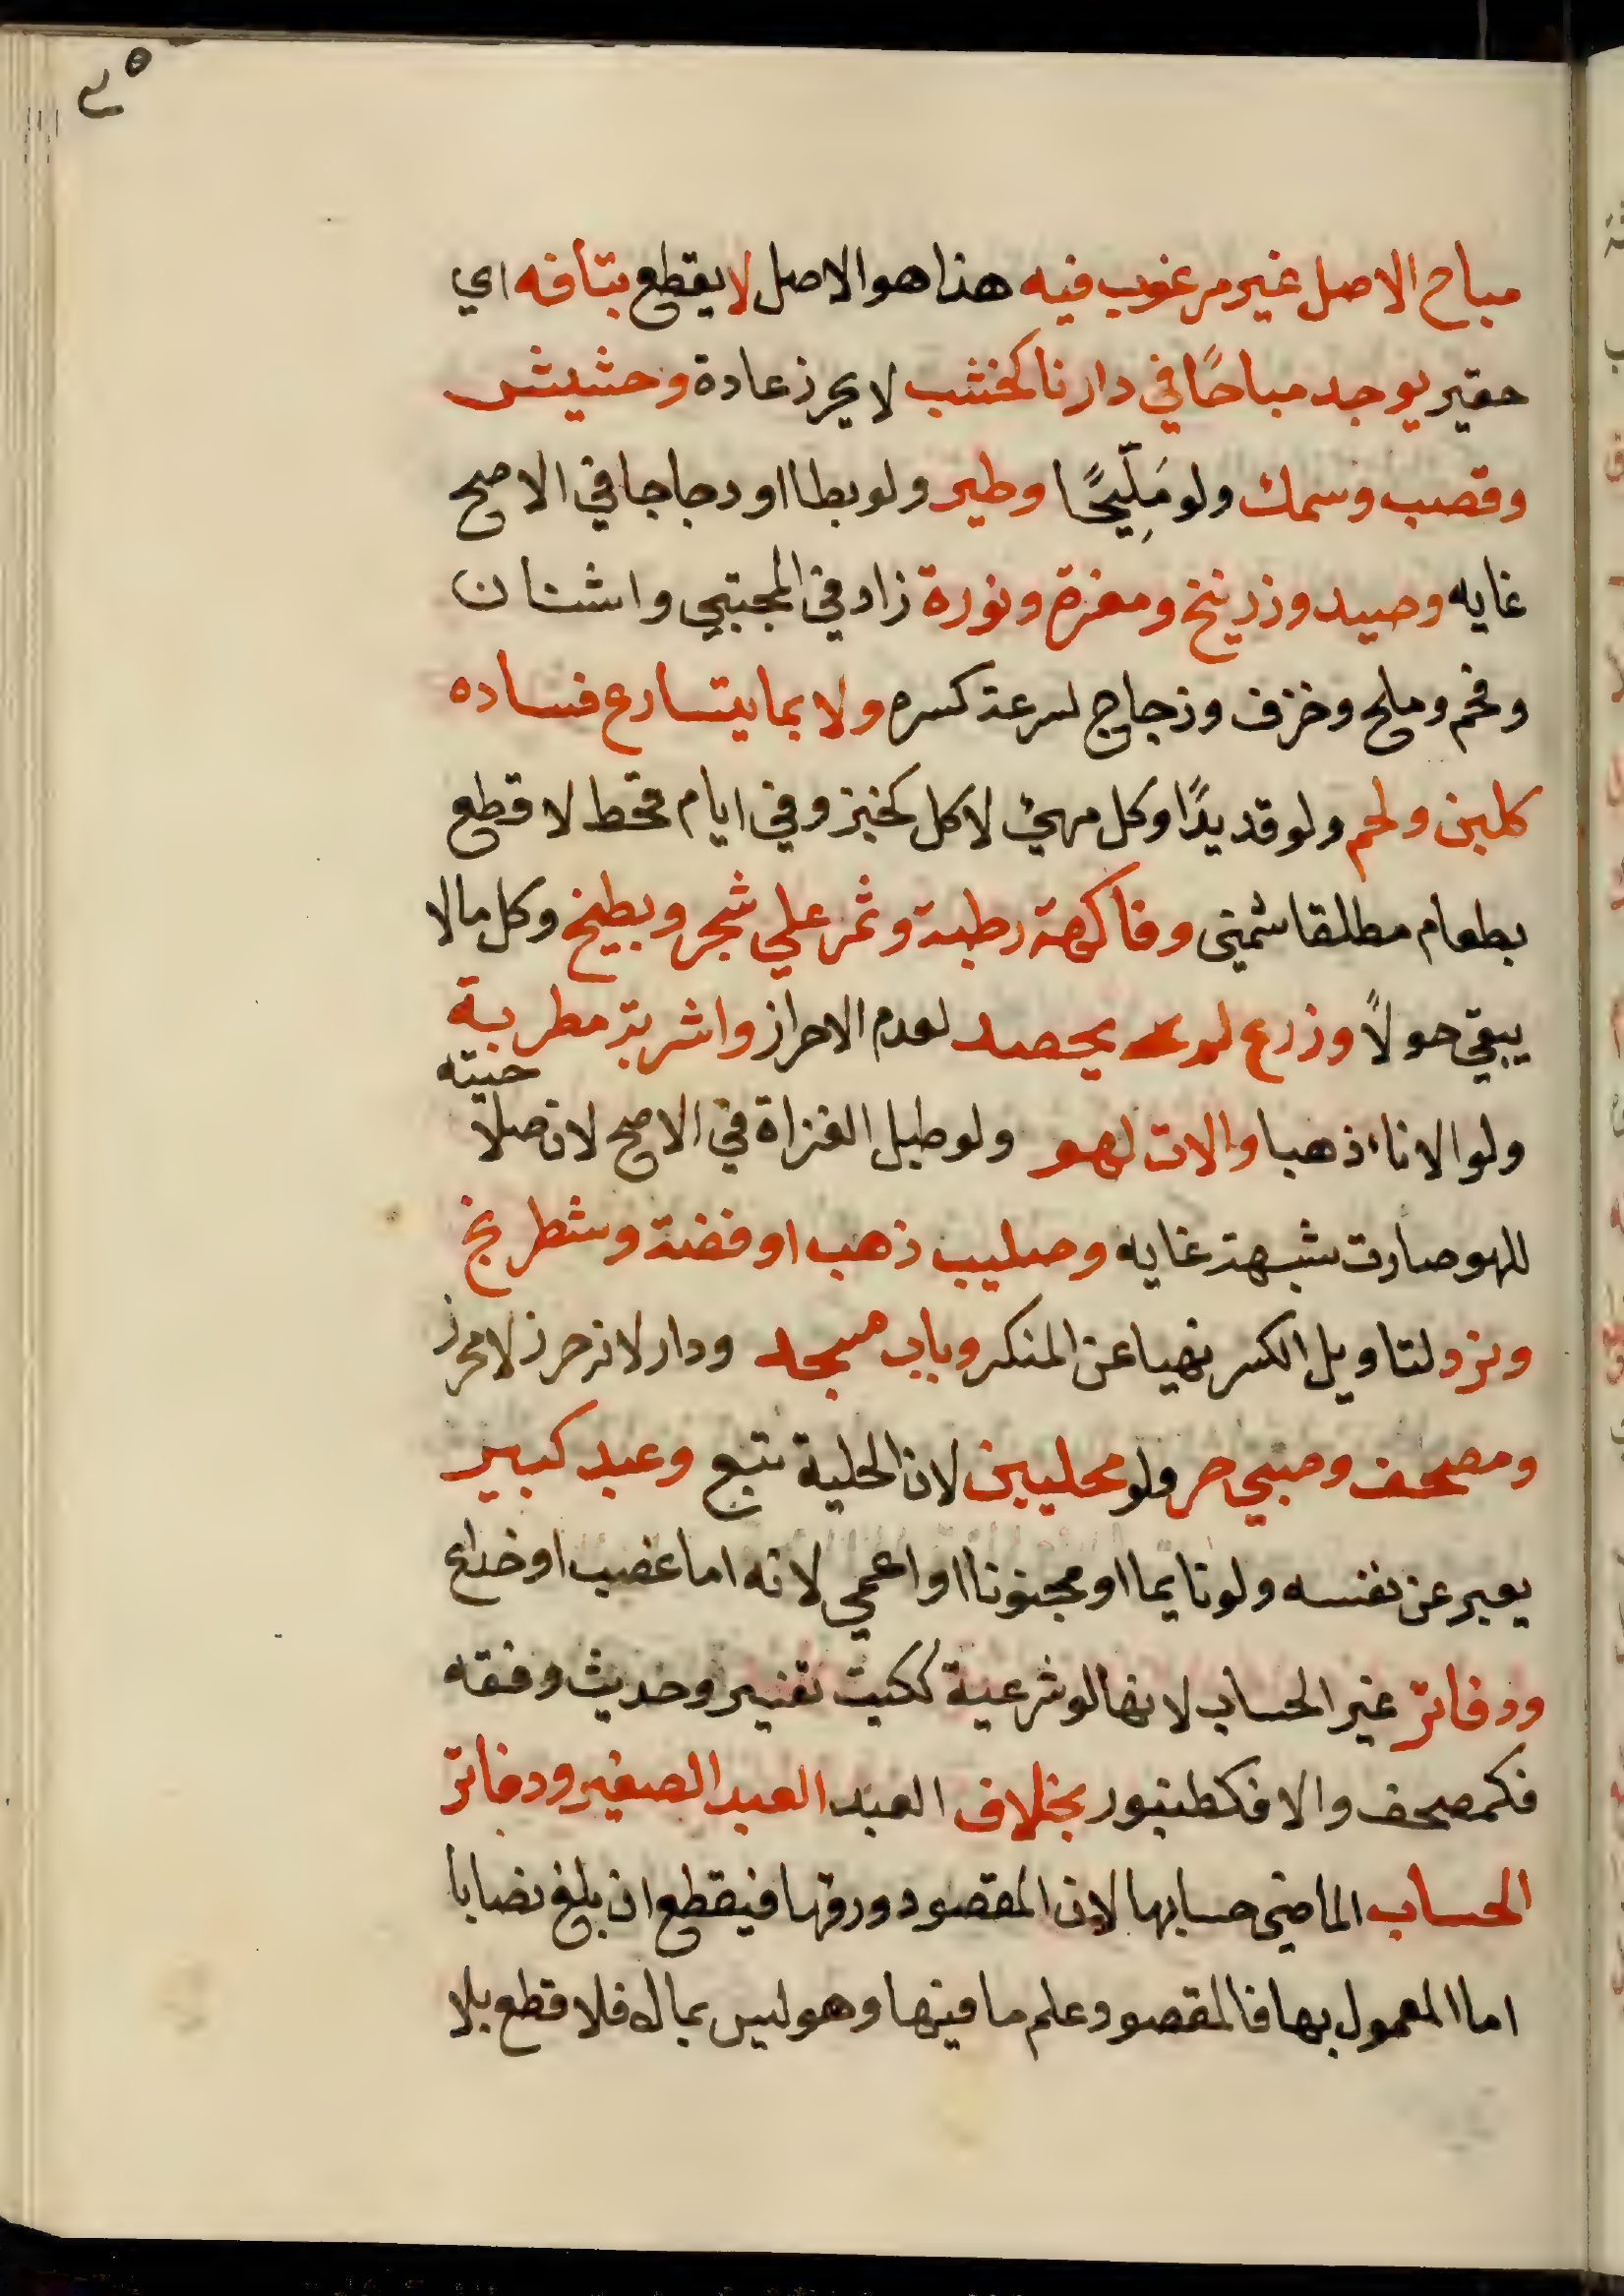 مباح الاصل غير مرغوب فيه هذا هو الاصل لا يقطع بتافه اي
حقير يوجد مباحًا في دارنا كخشب لا يحرز عادة وحشيش
وقصب وسمك ولو مَلِّيحًا وطير ولو بطا او دجاجا في الاصح
غايه وصيد وزرنيخ ومغرة ونورة زاد في المجتبي واشنان
وفحم وملح وخزف وزجاج لسرعة كسره ولا بما يتسارع فساده
كلبن ولحم ولو قديدًا وكل مهيئ لاكل كخبز وفي ايام قحط لا قطع
بطعام مطلقا شمني وفاكهة رطبة وثمر علي شجر وبطيخ وكل ما لا
يبقي حولاً وزرع لم يحصد لعدم الاحراز واشربة مطربة
ولو الاناء ذهبا والات لهو ولو طبل الغزاة في الاصح لان صلاحيته
للهو صارت شبهة غايه وصليب ذهب او فضة وشطرنج
ونرد لتاويل الكسر نهيا عن المنكر وباب مسجد ودار لانه حرز لا محرز
ومصحف وصبي حر ولو محليين لان الحلية تتبع وعبد كبير
يعبر عن نفسه ولو نايما او مجنونا او اعمي لانه اما غصب او خداع
ودفاتر غير الحساب لانها لو شرعية ككتب تفسير وحديث وفقه
فكمصحف والا فكطنبور بخلاف العبد العبد الصغير ودفاتر
الحساب الماضي حسابها لان المقصود ورقها فيقطع ان بلغ نصابا
اما المعمول بها فالمقصود علم ما فيها وهو ليس بمال فلا قطع بلا